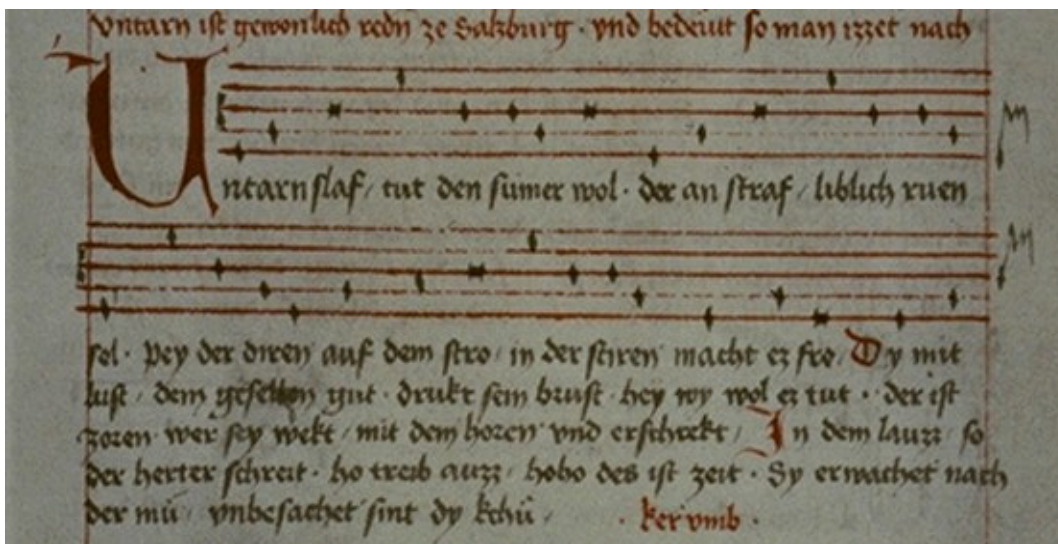 Untarn ist gewonlich redn ze Salzburg · vnd bedeutt so man izzet nach
Untarnslaf / tut den sumer wol · der an straf / liblich ruen
sol · Pey der diren auf dem stro / in der stiren macht ez fro / Dy mit
lust / dem gesellen gut · drukt sein brust · hey wy wol ez tut · der ist
zoren wer sey wekt / mit dem horen vnd erschrekt / In dem lauzz / so
der herter schreit · ho treib auzz / hoho des ist zeit · Sy erwachet nach
der mü / vnbesachet sint dy kchü /
· ker vmb ·